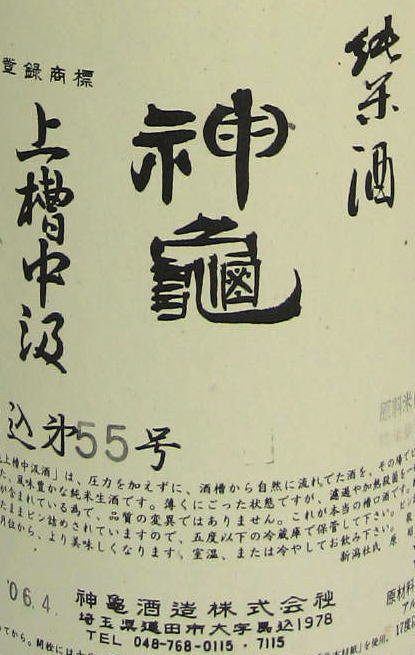 純米酒
登録商標
神龜
上槽中汲
込第55号
上槽中汲酒」は、圧力を加えずに、酒槽から自然に流れてた酒を、その場で
た、風味豊かな純米生酒です。薄くにごった状態ですが、濾過や加熱殺菌を
が含まれている為で、品質の変異ではありません。これが本当の槽口酒です。
たままビン詰めされていますので、五度以下の冷蔵庫で保管して下さい。
月位から、より美味しくなります。室温、または冷やしてお飲み下さい。
新潟杜氏 原
原料米
'06.4.
神亀酒造株式会社
埼玉県蓮田市大字馬込1978
TEL 048-768-0115・7115
原材料
17度